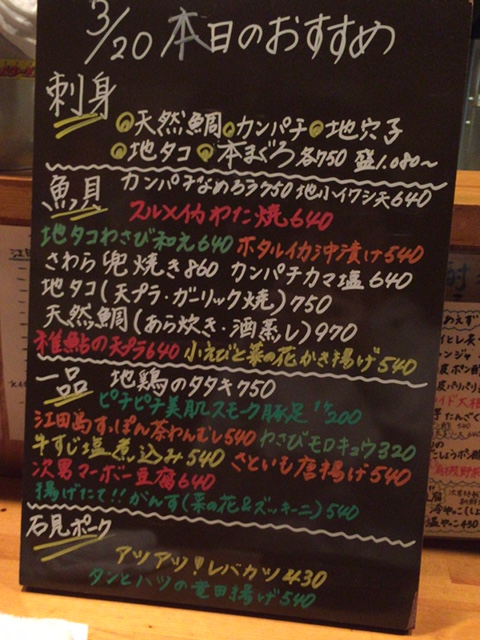 3/20 本日のおすすめ
刺身
◎天然鯛◎カンパチ◎地穴子
◎地タコ◎本まぐろ各750 盛1.080〜
魚貝 カンパチなめろう750 地小イワシ天640
スルメイカわた焼640
地タコわさび和え640 ホタルイカ沖漬け540
さわら兜焼き860 カンパチカマ塩640
地タコ(天プラ・ガーリック焼)750
天然鯛(あら炊き・酒蒸し)970
稚鮎の天プラ640 小えびと菜の花かき揚げ540
一品 地鶏のタタキ750
ピチピチ美肌スモーク豚足 200
江田島すっぽん茶わんむし540 わさびモロキュウ320
牛すじ塩煮込み540 さといも唐揚げ540
次男マーボー豆腐640
揚げたて!!がんす(菜の花&ズッキーニ)540
石見ポーク
アツアツ!レバカツ430
タンとハツの竜田揚げ540